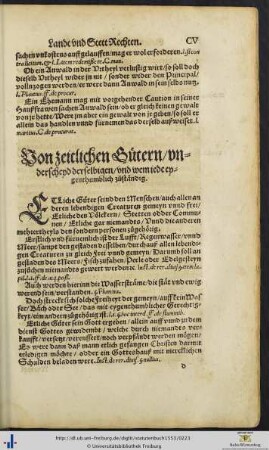 Landt vnd Stett Rechten. CV
suchen vnkostens auff gelauffen mag er wol erforderen.
Ob ein Anwald in der Vrtheyl verlustig wirt / so soll doch
dieselb Vrtheyl wider jn nit / sonder wider den Principal
vollnzogen werden / er were dann Anwald in seim selbs nutz.
Ein Ehemann mag mit vorgehender Caution in seiner
Haußfrawen sachen Anwald sein / ob er gleich keinen gewalt
von jr hette / Wa jm aber ein gewalt von jr geben / so soll er
allein das handlen vnnd fürnemen das derselb außweiset.
Von zeitlichen Gütern / vnderscheyd
derselbigen / vnd wem jede eygenthumblich
zůständig.
ETliche Güter seind den Menschen / auch allen anderen
lebendigen Creaturen gemeyn vnnd frei /
Etliche den Völckern / Stetten odder Communen /
Etliche gar niemandes / Vnnd die anderen
mehrertheyls den sondern personen zůgehörig.
Erstlich vnd fürnemlich ist der Lufft / Regenwasser / vnnd
Meer / sampt den gestaden desselben / durch auß allen lebendigen
Creaturen zů gleich frei vnnd gemeyn / Darumb soll an
gestaden des Meers / Fisch zůfahen / Perle oder Edelgesteyn
zůsůchen niemandes gewert werden.
Hierzů werden auch die Wassersträme / die stät vnd ewig
werend sein / verstanden.
Doch streckt sich solche Freiheyt der gemeyn / auff kein Weiher /
Bäch oder See / das mit eygenthumblicher Gerechtigkeyt /
einem andern zůgehörig ist.
Etliche Güter sein Gott ergeben / allein auff vnd zu dem
dienst Gottes gewidmet / welche durch niemandes verkaufft /
versetzt / vereussert / noch verpfändt werden mögen /
Es were dann das man etlich gefangen Christen darmit
erledigen möchte / odder ein Gotteshauß mit mercklichen
Schulden beladen wert.
http://dl.ub.uni-freiburg.de/diglit/statutenbuch1553/0223
© Universitätsbibliothek Freiburg